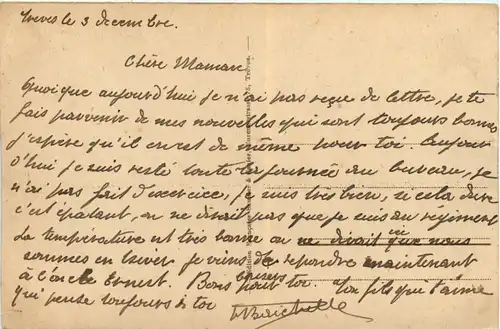 Trèves le 3 décembre.
Chère Maman
Quoique aujourd'hui je n'ai pas reçue de lettre, je te
fais parvenir de mes nouvelles qui sont toujours bonnes
j'espère qu'il en est de même pour toi. Aujour
d'hui je suis resté toute la journée au bureau, je
n'ai pas fait d'exercice, je suis très bien, si cela dure
c'est épatant, on ne dirait pas que je suis au régiment
La température est très bonne on ne dirait ici que nous
sommes en hiver je viens de repondre maintenant
à l'oncle Ernest. Bons baisers pour toi. Ton fils qui t'aime
qui pense toujours à toi